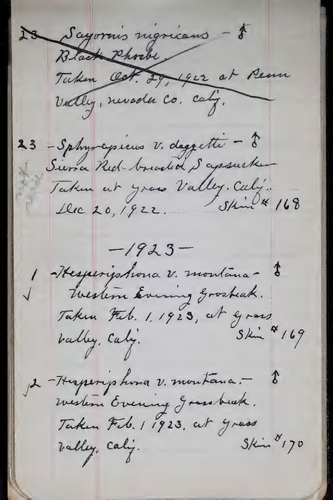 23 Sayornis nigricans - ♂
Black Phoebe.
Taken Oct. 29, 1922 at Penn
Valley, nevada Co. Calif.
23 - Sphyrapicus v. daggetti - ♂
Sierra Red-breasted Sapsucker
Taken at Grass Valley. Calif.
Dec 20, 1922. Skin # 168
-1923-
1 - Hesperiphona v. montana - ♂
Western Evening Grosbeak.
Taken Feb. 1, 1923, at Grass
Valley, Calif. Skin # 169
2 - Hesperiphona v. montana. - ♂
Western Evening Grosbeak.
Taken Feb. 1 1923, at Grass
Valley, Calif. Skin # 170